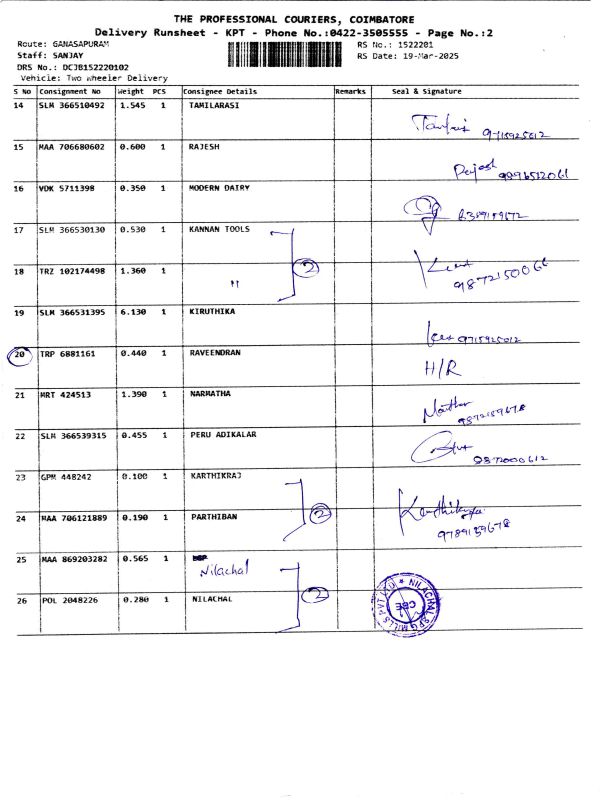 THE PROFESSIONAL COURIERS, COIMBATORE
Delivery Runsheet - KPT - Phone No.:0422-3505555 - Page No.:2
Route: GANASAPURAM RS No.: 1522201
Staff: SANJAY RS Date: 19-Mar-2025
DRS No.: DCJB152220102
Vehicle: Two Wheeler Delivery
S No Consignment No Weight PCS Consignee Details Remarks Seal & Signature
14 SLM 366510492 1.545 1 TAMILARASI
9715925012
15 MAA 706680602 0.600 1 RAJESH
Rajesh
16 VDK 5711398 0.350 1 MODERN DAIRY
17 SLM 366530130 0.530 1 KANNAN TOOLS
2
18 TRZ 102174498 1.360 1 "
19 SLM 366531395 6.130 1 KIRUTHIKA
9715925012
20 TRP 6881161 0.440 1 RAVEENDRAN H/R
21 MRT 424513 1.390 1 NARMATHA
22 SLM 366539315 0.455 1 PERU ADIKALAR
23 GPM 448242 0.100 1 KARTHIKRAJ
2
24 MAA 706121889 0.190 1 PARTHIBAN
9789159678
25 MAA 869203282 0.565 1 Nilachal
2
26 POL 2048226 0.280 1 NILACHAL
NILACHAL SPG MILLS PVT LTD
CBE